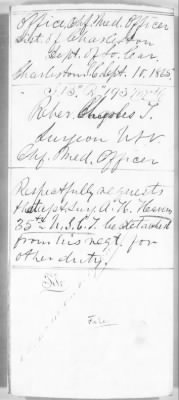 Office, Chf. Med. Officer
Dist. of Charleston
Dept. of So. Car.
Charleston S.C. Sept. 18. 1865.
Reber, Charles T.
Surgeon U.S.V
Chf. Med. Officer
Respectfully requests
that Asst Surg. A. H.
35th U.S.C.T. be detached
from his regt. for
other duty.
File